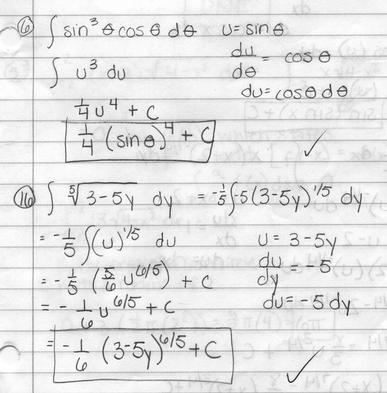 ⑥ ∫ sin³ θ cos θ dθ   u = sin θ
∫ u³ du   du/dθ = cos θ
du = cos θ dθ
1/4 u⁴ + C
1/4 (sin θ)⁴ + C ✓
⑯ ∫ ⁵√(3-5y) dy = -1/5 ∫ -5(3-5y)^1/5 dy
= -1/5 ∫ (u)^1/5 du   u = 3-5y
= -1/5 (5/6 u^6/5) + C   du/dy = -5
= -1/6 u^6/5 + C   du = -5 dy
= -1/6 (3-5y)^6/5 + C ✓